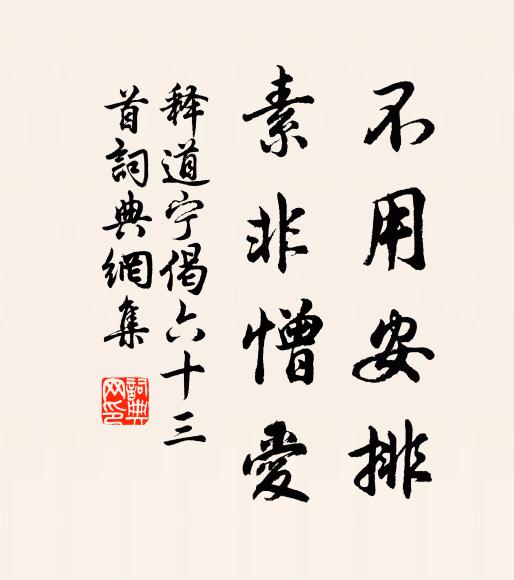 不用安排
素非憎愛
释道宁偈六十三
首詞典網集
詞典
网印